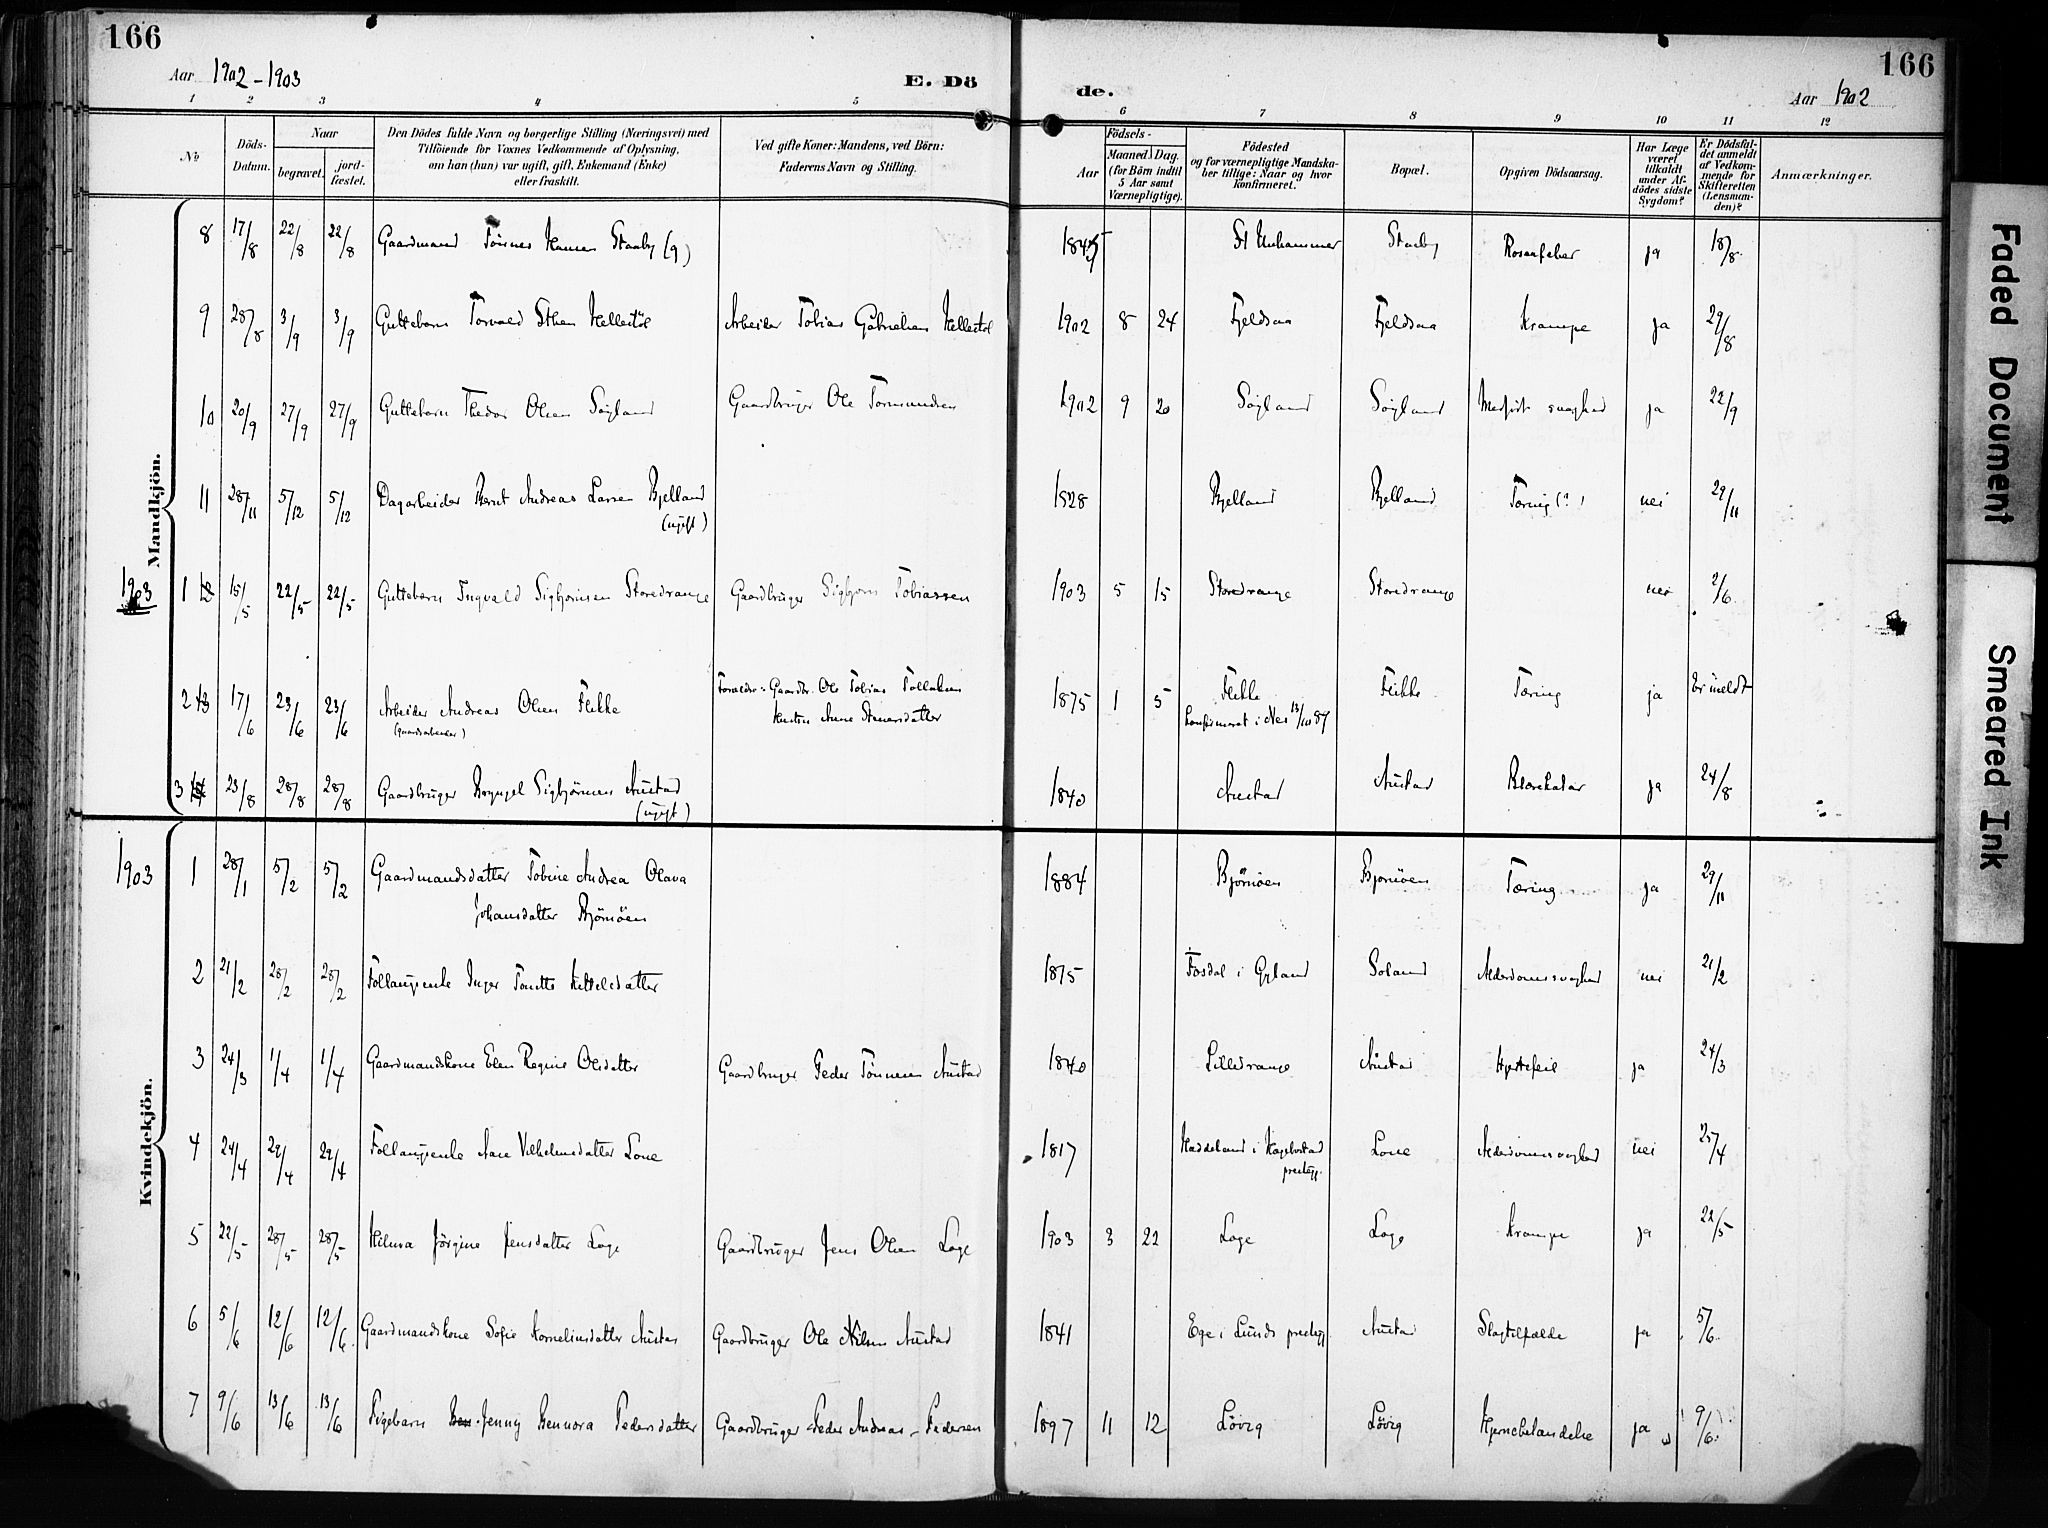 166
Aar 1902-1903
E. Dö
de.
Aar 1902
166
1 2 3 4 5 6 7 8 9 10 11 12
No
Döds-Datum.
Naar
begravet.
jord-fæstet.
Den Dödes fulde Navn og borgerlige Stilling (Næringsvei) med
Tilföiende for Voxnes Vedkommende af Oplysning,
om han (hun) var ugift, gift, Enkemand (Enke)
eller fraskilt.
Ved gifte Koner: Mandens, ved Börn:
Faderens Navn og Stilling.
Födsels-
Aar
Maaned. Dag.
(for Börn indtil
5 Aar samt
Værnepligtige).
Födested
og for værnepligtige Mandska-
ber tillige: Naar og hvor
konfirmeret.
Bopæl.
Opgiven Dödsaarsag.
Har Læge
været
tilkaldt
under Af-
dödes sidste
Sygdom?
Er Dödsfal-
det anmeldt
af Vedkom-
mende for
Skifteretten
(Lensman-
den)?
Anmærkninger.
Mandkjön.
8 17/8 22/8 22/8 Gaardmand Tönnes Hansen Staaby (g) 1845 Staaby Rosenfeber ja 18/8
9 28/8 3/9 3/9 Guttebarn Torvald Sthen Hellestöl Arbeider Tobias Gabrielsen Hellestöl 1902 8 24 Fjeldsaa Fjeldsaa Krampe ja 29/8
10 20/9 27/9 27/9 Guttebarn Theodor Olsen Söyland Gaardbruger Ole Tormundsen 1902 9 20 Söyland Söyland Medfödt svaghed ja 22/9
11 28/11 5/12 5/12 Dagarbeider Bernt Andreas Larsen Bjelland
(ugift) 1828 Bjelland Bjelland Tæring (?) nei 29/11
1903
1 12 15/5 22/5 22/5 Guttebarn Ingvald Sigbjörnsen Storedrange Gaardbruger Sigbjorn Tobiassen 1903 5 15 Storedrange Storedrange nei 2/6
2 13 17/6 23/6 23/6 Arbeider Andreas Olsen Flikke
(gaardarbeider) Forældre: Gaardbr. Ole Tobias Tollaksen
Hustru Anne Stenersdatter 1875 1 5 Flikke
Konfirmeret i Nes 13/10 89 Flikke Tæring ja Er meldt
3 23/8 28/8 28/8 Gaardbruger Bryngel Sigbjörnsen Austad
(ugift) 1840 Austad Austad Blærekatar ja 24/8
Kvindekjön.
1903
1 28/1 5/2 5/2 Gaardmandsdatter Tobine Andrea Olava
Johansdatter Björnöen 1884 Björnöen Bjornöen Tæring ja 29/11
2 21/2 28/2 28/2 Follaugsenke Inger Tonette Kittelsdatter 1815 Fosdal i Gyland Soland Alderdomssvaghed nei 21/2
3 24/3 1/4 1/4 Gaardmandskone Elen Regine Olsdatter Gaardbruger Peder Tönnesen Austad 1840 Lilledrange Austad Hjertefeil ja 24/3
4 24/4 29/4 29/4 Follaugsenke Ane Vilhelmsdatter Lone 1817 Haddeland i Hægebostad
prestegj. Lone Alderdomssvaghed nei 25/4
5 22/5 28/5 28/5 Hilma Jörgine Jensdatter Loge Gaardbruger Jens Olsen Loge 1903 3 22 Loge Loge Krampe ja 22/5
6 5/6 12/6 12/6 Gaardmandskone Sofie Kornelinsdatter Austad Gaardbruger Ole Nilsen Austad 1841 Ege i Lunds prestegj. Austad Slagtilfælde ja 5/6
7 9/6 13/6 13/6 Pigebarn Jenny Bennora Pedersdatter Gaardbruger Peder Andreas Pedersen 1897 11 12 Lövig Lövig Hjernebetændelse ja 9/6
Faded Document
Smeared Ink